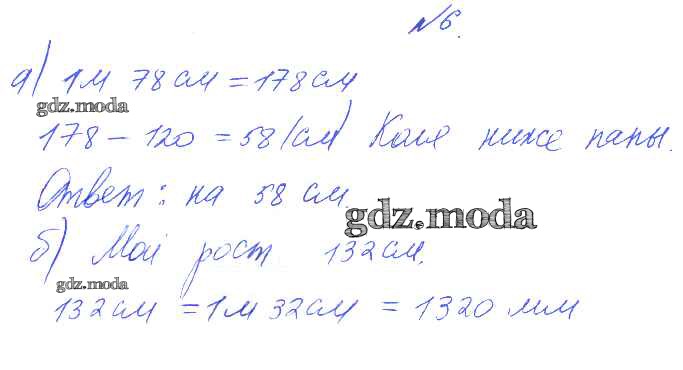 №6.
а) 1м 78см = 178см
gdz.moda
178 - 120 = 58 (см) Коля ниже папы.
Ответ: на 58 см.
gdz.moda
б) Мой рост 132см.
gdz.moda
132см = 1м 32см = 1320 мм